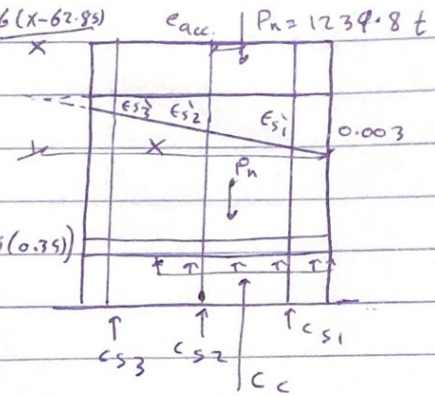 6(X-62.85)
e acc.
Pn = 1239.8 t
X
εs3` εs2` εs1`
0.003
X
Pn
(0.35))
Cs3 Cs2 Cs1
Cc